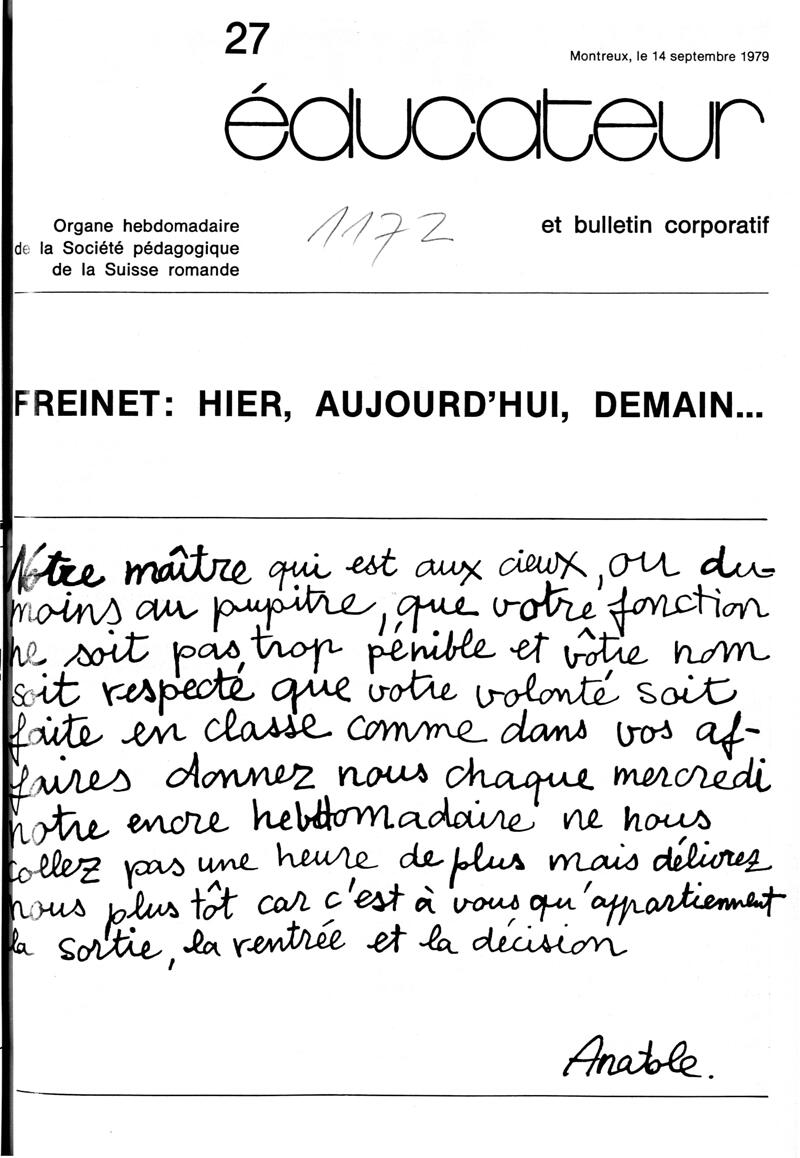 27
Montreux, le 14 septembre 1979
éducateur
Organe hebdomadaire
de la Société pédagogique
de la Suisse romande
1172
et bulletin corporatif
FREINET: HIER, AUJOURD'HUI, DEMAIN...
Notre maître qui est aux cieux, ou du-
moins au pupitre, que votre fonction
ne soit pas trop pénible et vôtre nom
soit respecté que votre volonté soit
faite en classe comme dans vos af-
faires donnez nous chaque mercredi
notre encre hebdomadaire ne nous
collez pas une heure de plus mais délivrez
nous plus tôt car c'est à vous qu'appartiennent
la sortie, la rentrée et la décision
Anatole.